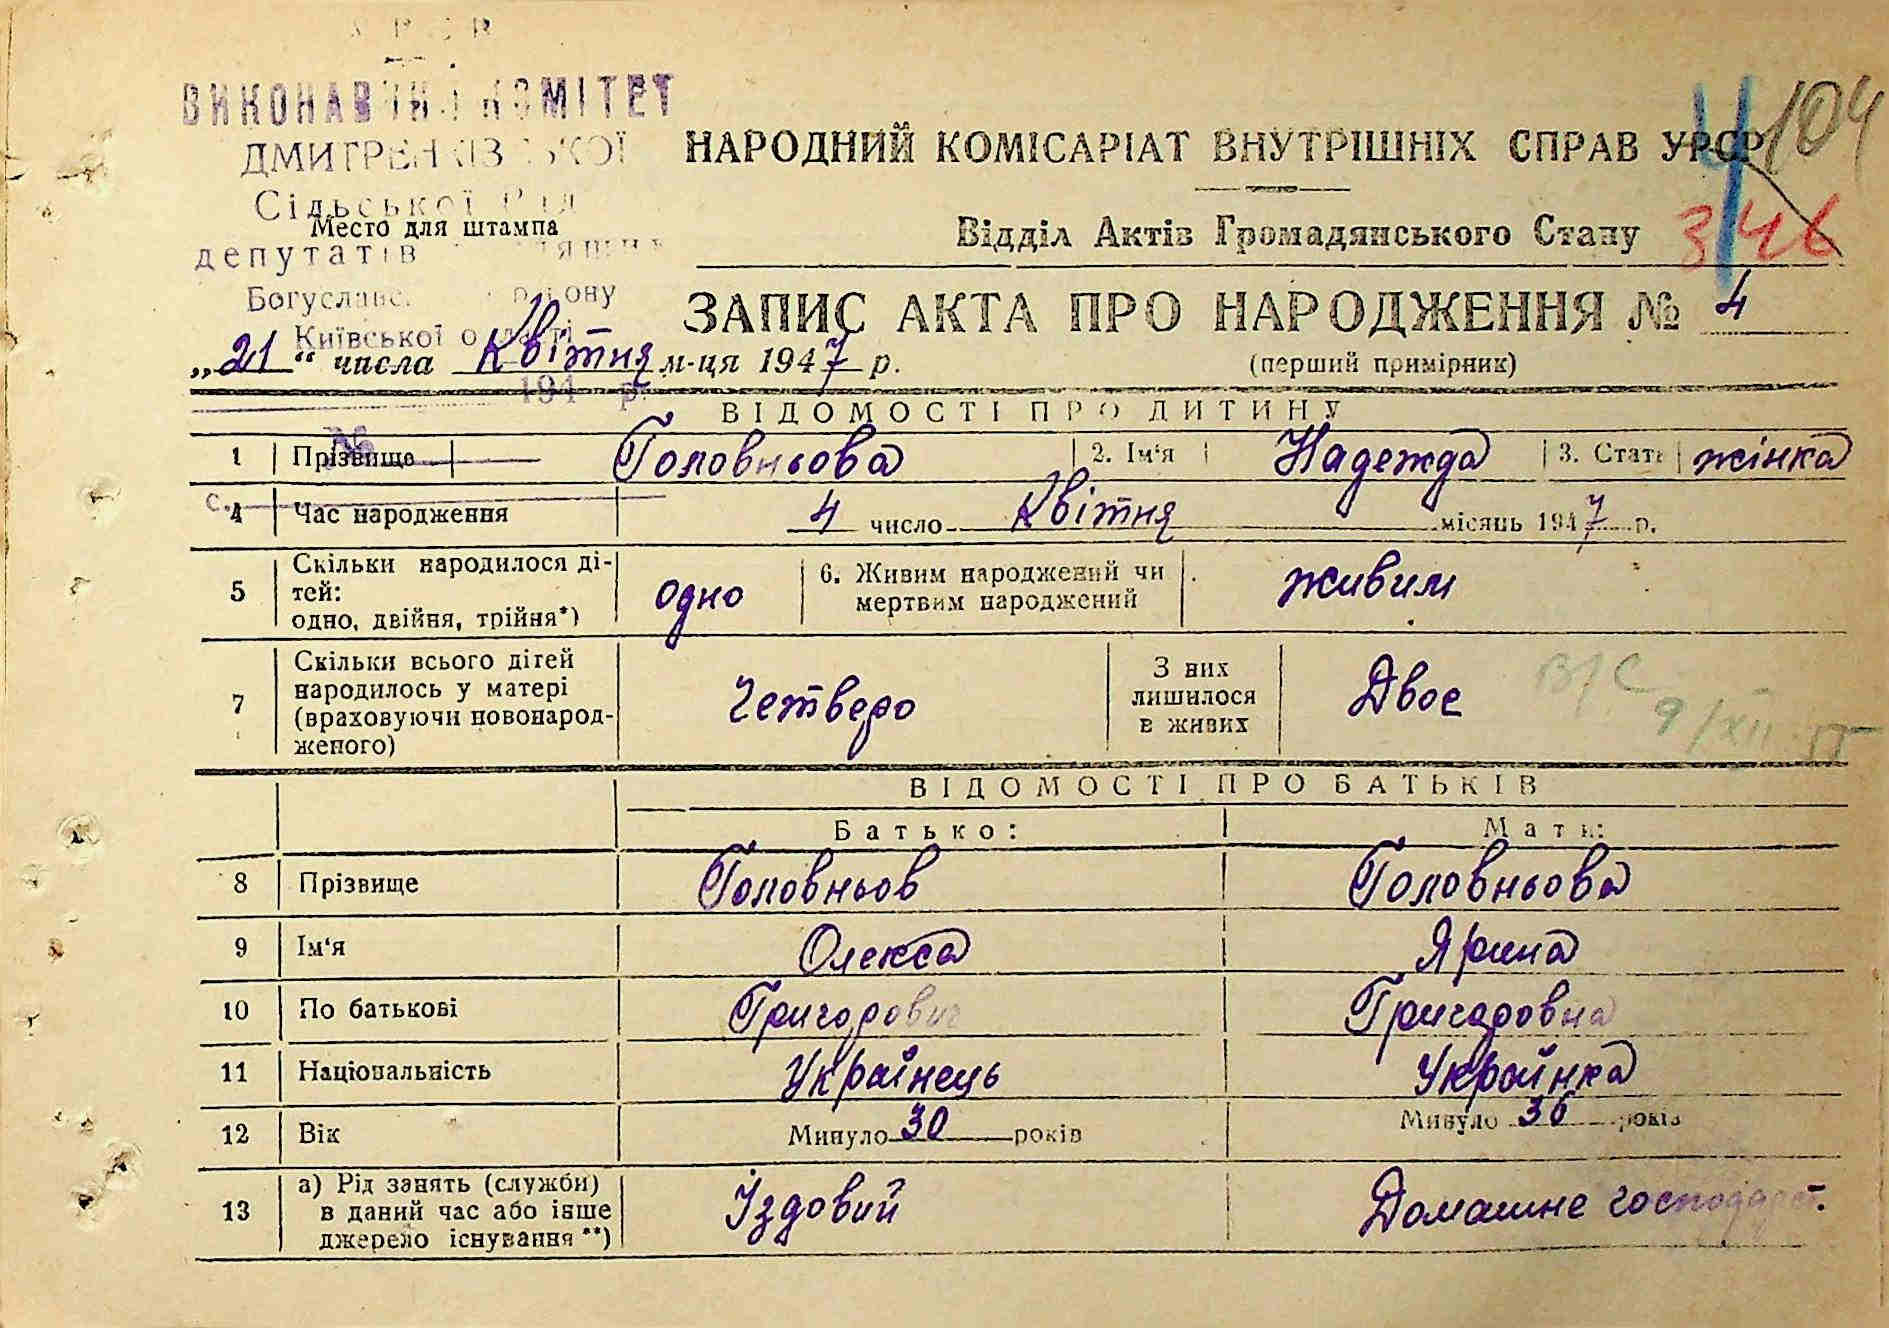 ВИКОНАВЧИЙ КОМІТЕТ
ДМИТРЕНКІВСЬКОЇ
Сільської Ради
депутатів трудящих
Богуславського району
Київської області
194 р.
№
с.
Место для штампа
НАРОДНИЙ КОМІСАРІАТ ВНУТРІШНІХ СПРАВ УРСР
104
4
3/46
Відділ Актів Громадянського Стану
ЗАПИС АКТА ПРО НАРОДЖЕННЯ № 4
„21“ числа Квітня м-ця 1947 р.
(перший примірник)
ВІДОМОСТІ ПРО ДИТИНУ
1 Прізвище Головньова 2. Ім‘я Надежда 3. Стать жінка
4 Час народження 4 число Квітня місяць 1947 р.
5 Скільки народилося ді-
тей:
одно, двійня, трійня*)
одно
6. Живим народжений чи
мертвим народжений
живим
7 Скільки всього дітей
народилось у матері
(враховуючи новонарод-
женого)
Четверо
З них
лишилося
в живих
Двоє
В/С
9/XII
ВІДОМОСТІ ПРО БАТЬКІВ
Батько: Мати:
8 Прізвище Головньов Головньова
9 Ім‘я Олекса Ярина
10 По батькові Григорович Григоровна
11 Національність Українець Українка
12 Вік Минуло 30 років Минуло 36 років
13 а) Рід занять (служби)
в даний час або інше
джерело існування **)
Їздовий Домашнє господарст.